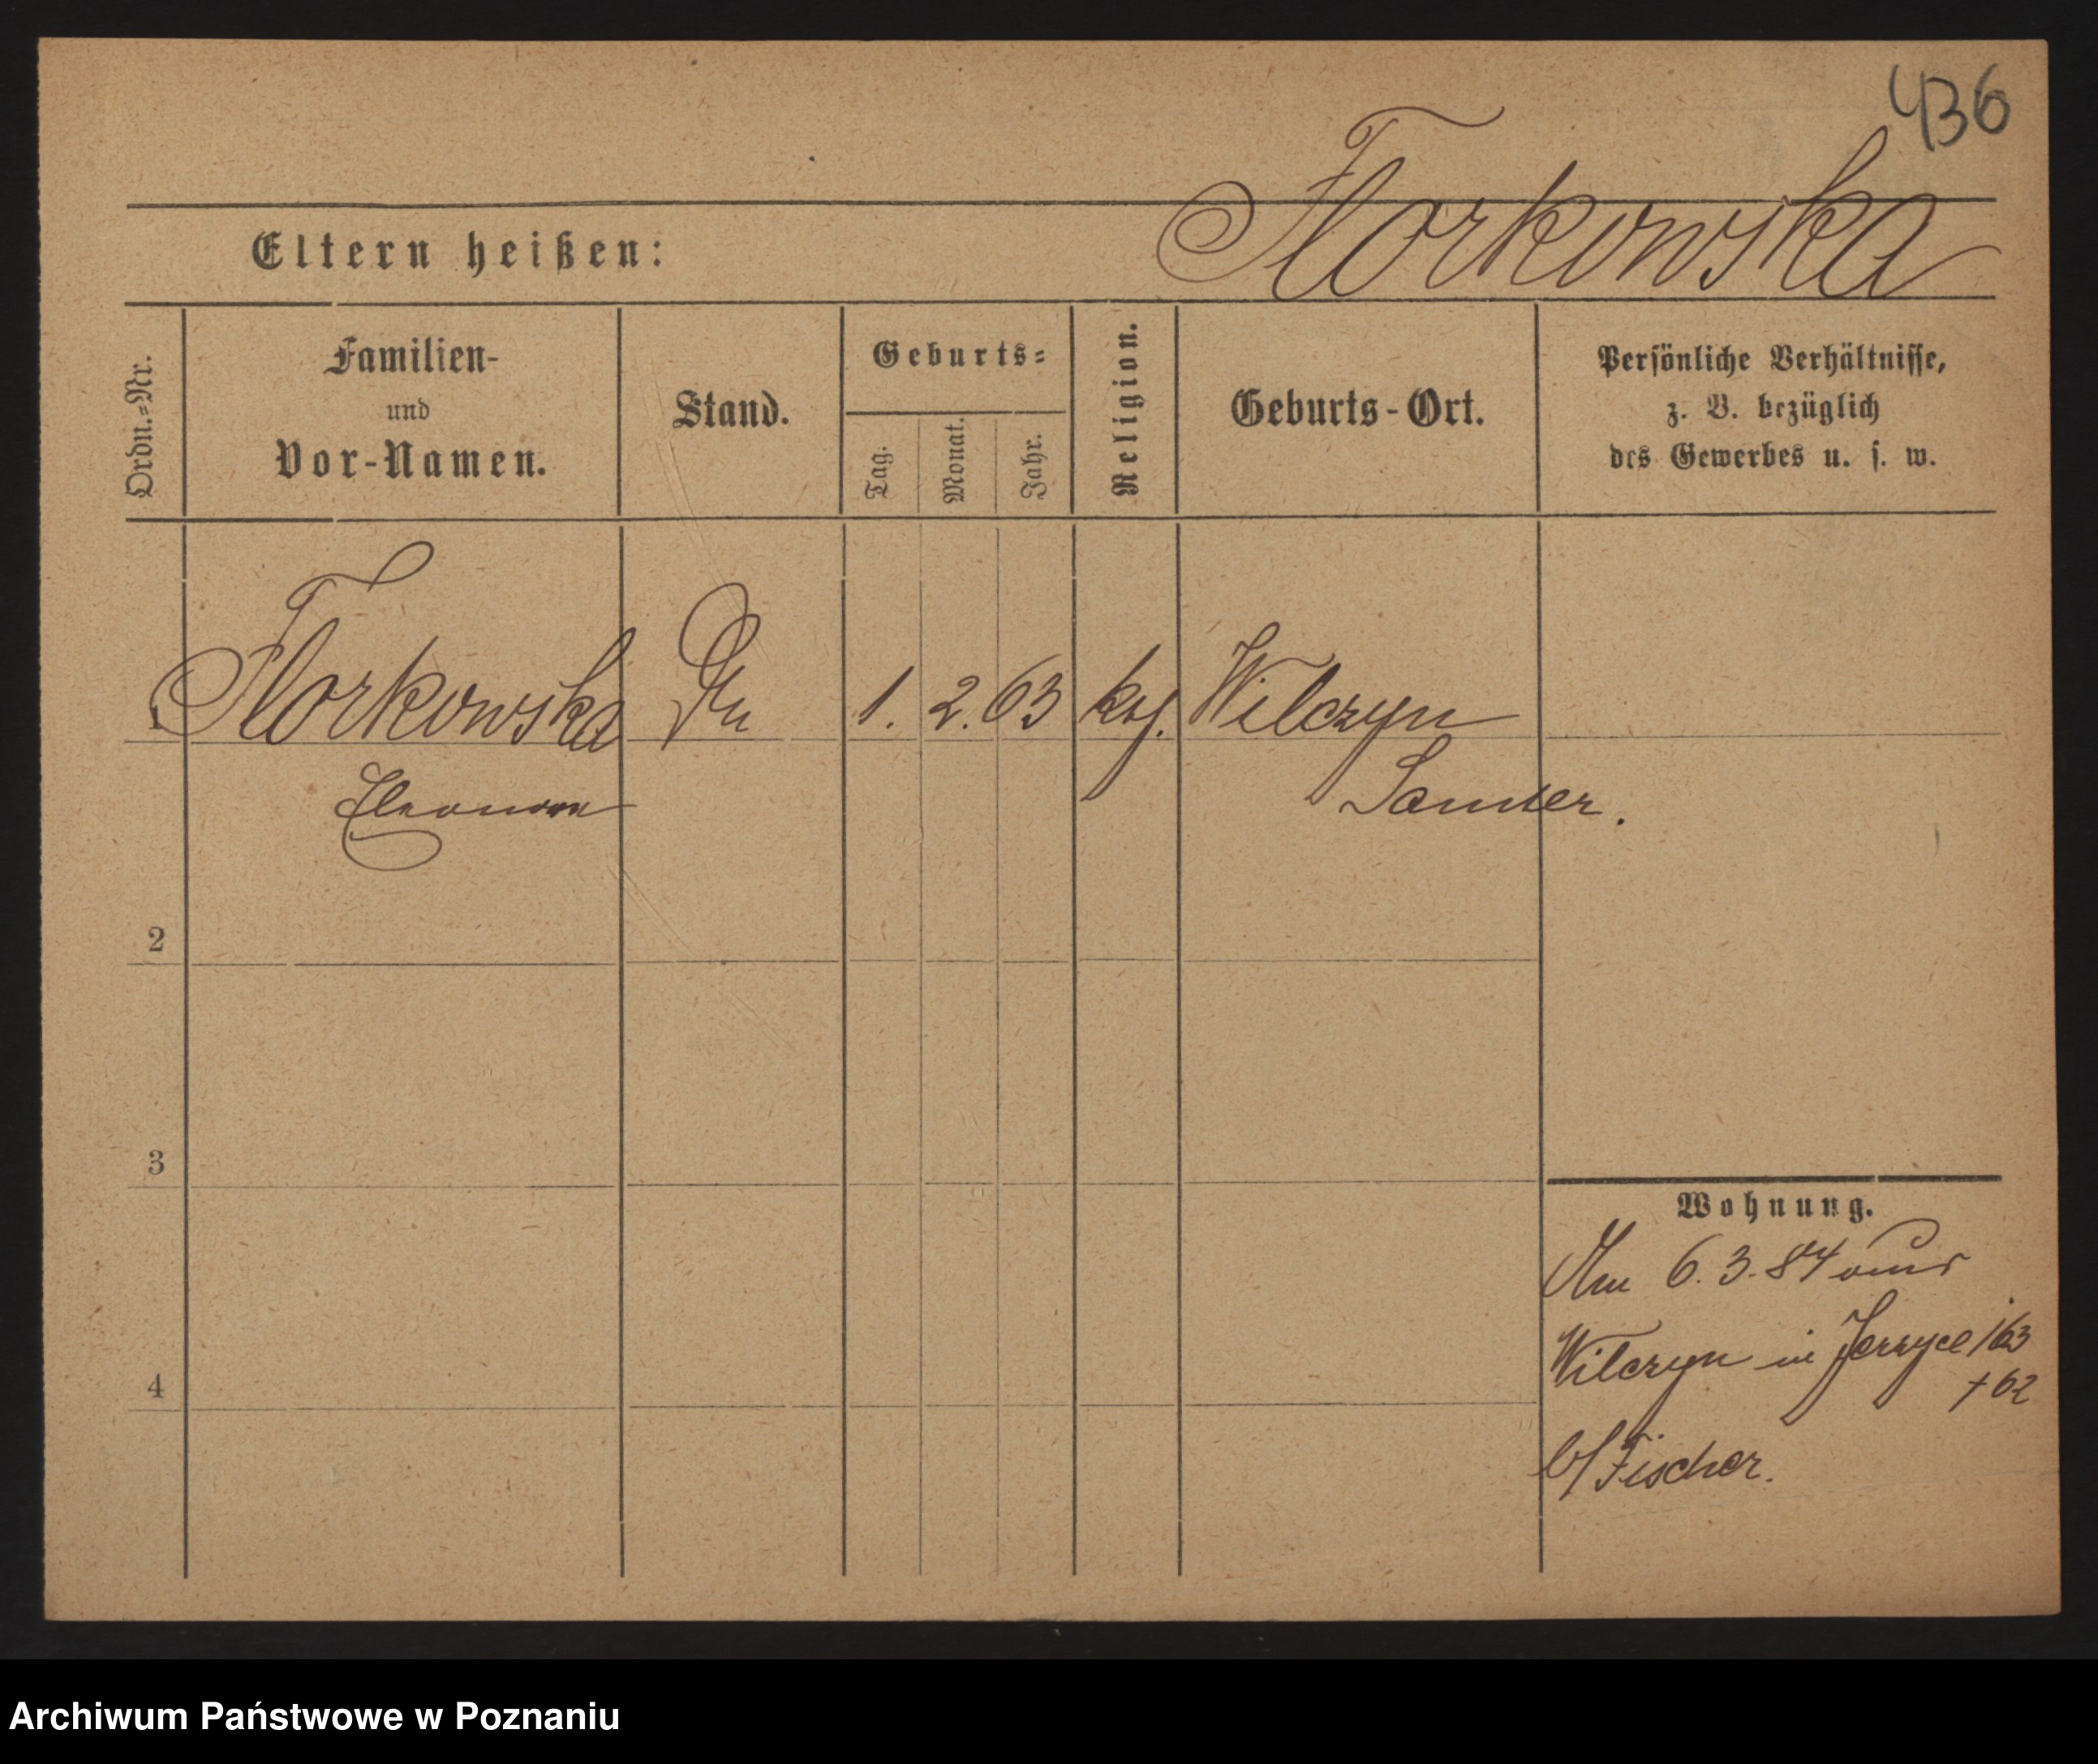 436
Florkowska
Eltern heißen:
Ordn.=Nr.
Familien-
und
Vor-Namen.
Stand.
Geburts=
Tag.
Monat.
Jahr.
Religion.
Geburts-Ort.
Persönliche Verhältnisse,
z. B. bezüglich
des Gewerbes u. s. w.
1 Florkowska 1. 2. 63 Wilczyn
Eleonora Samter.
2
3
4
Wohnung.
Am 6. 3. 84 aus
Wilczyn in Jerzyce 163
+62
b/Fischer.
Archiwum Państwowe w Poznaniu